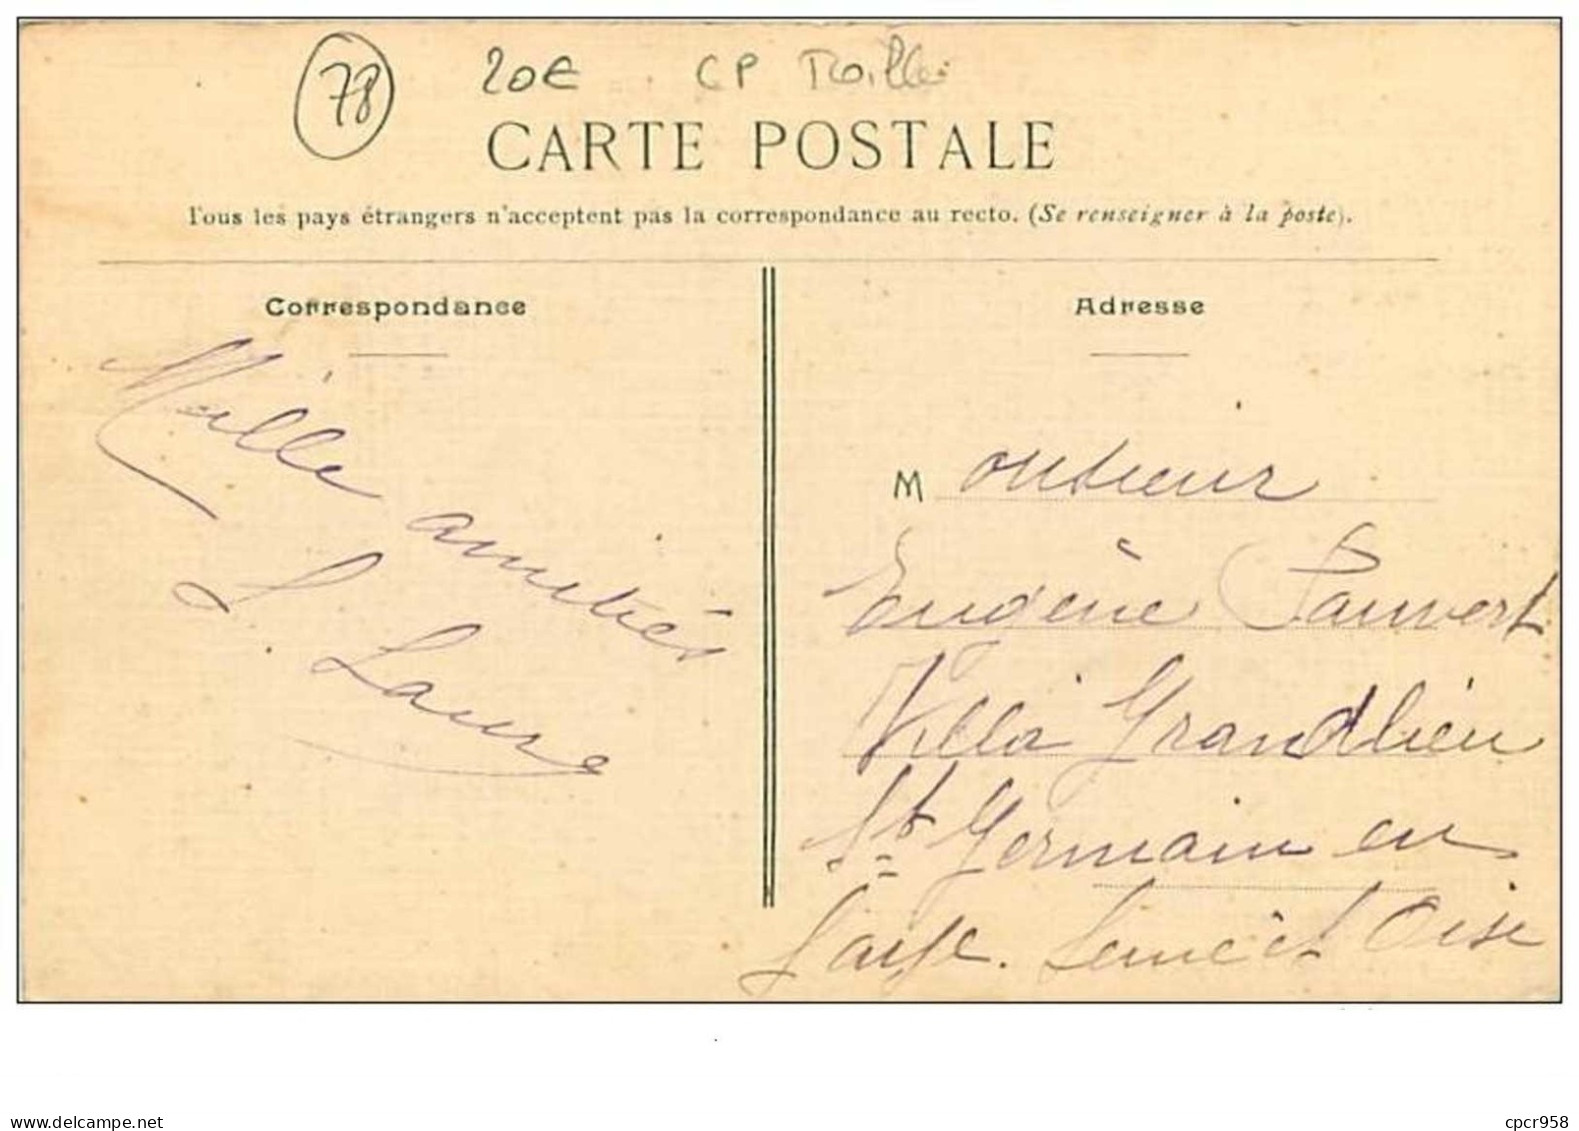 78
20€
CP Toilée
CARTE POSTALE
Tous les pays étrangers n'acceptent pas la correspondance au recto. (Se renseigner à la poste).
Correspondance
Mille
amitiés
L. Laure
Adresse
Monsieur
Eugène Pauvert
Villa Grandlieu
St Germain en
Laye. Seine et Oise
www.delcampe.net
cpcr958